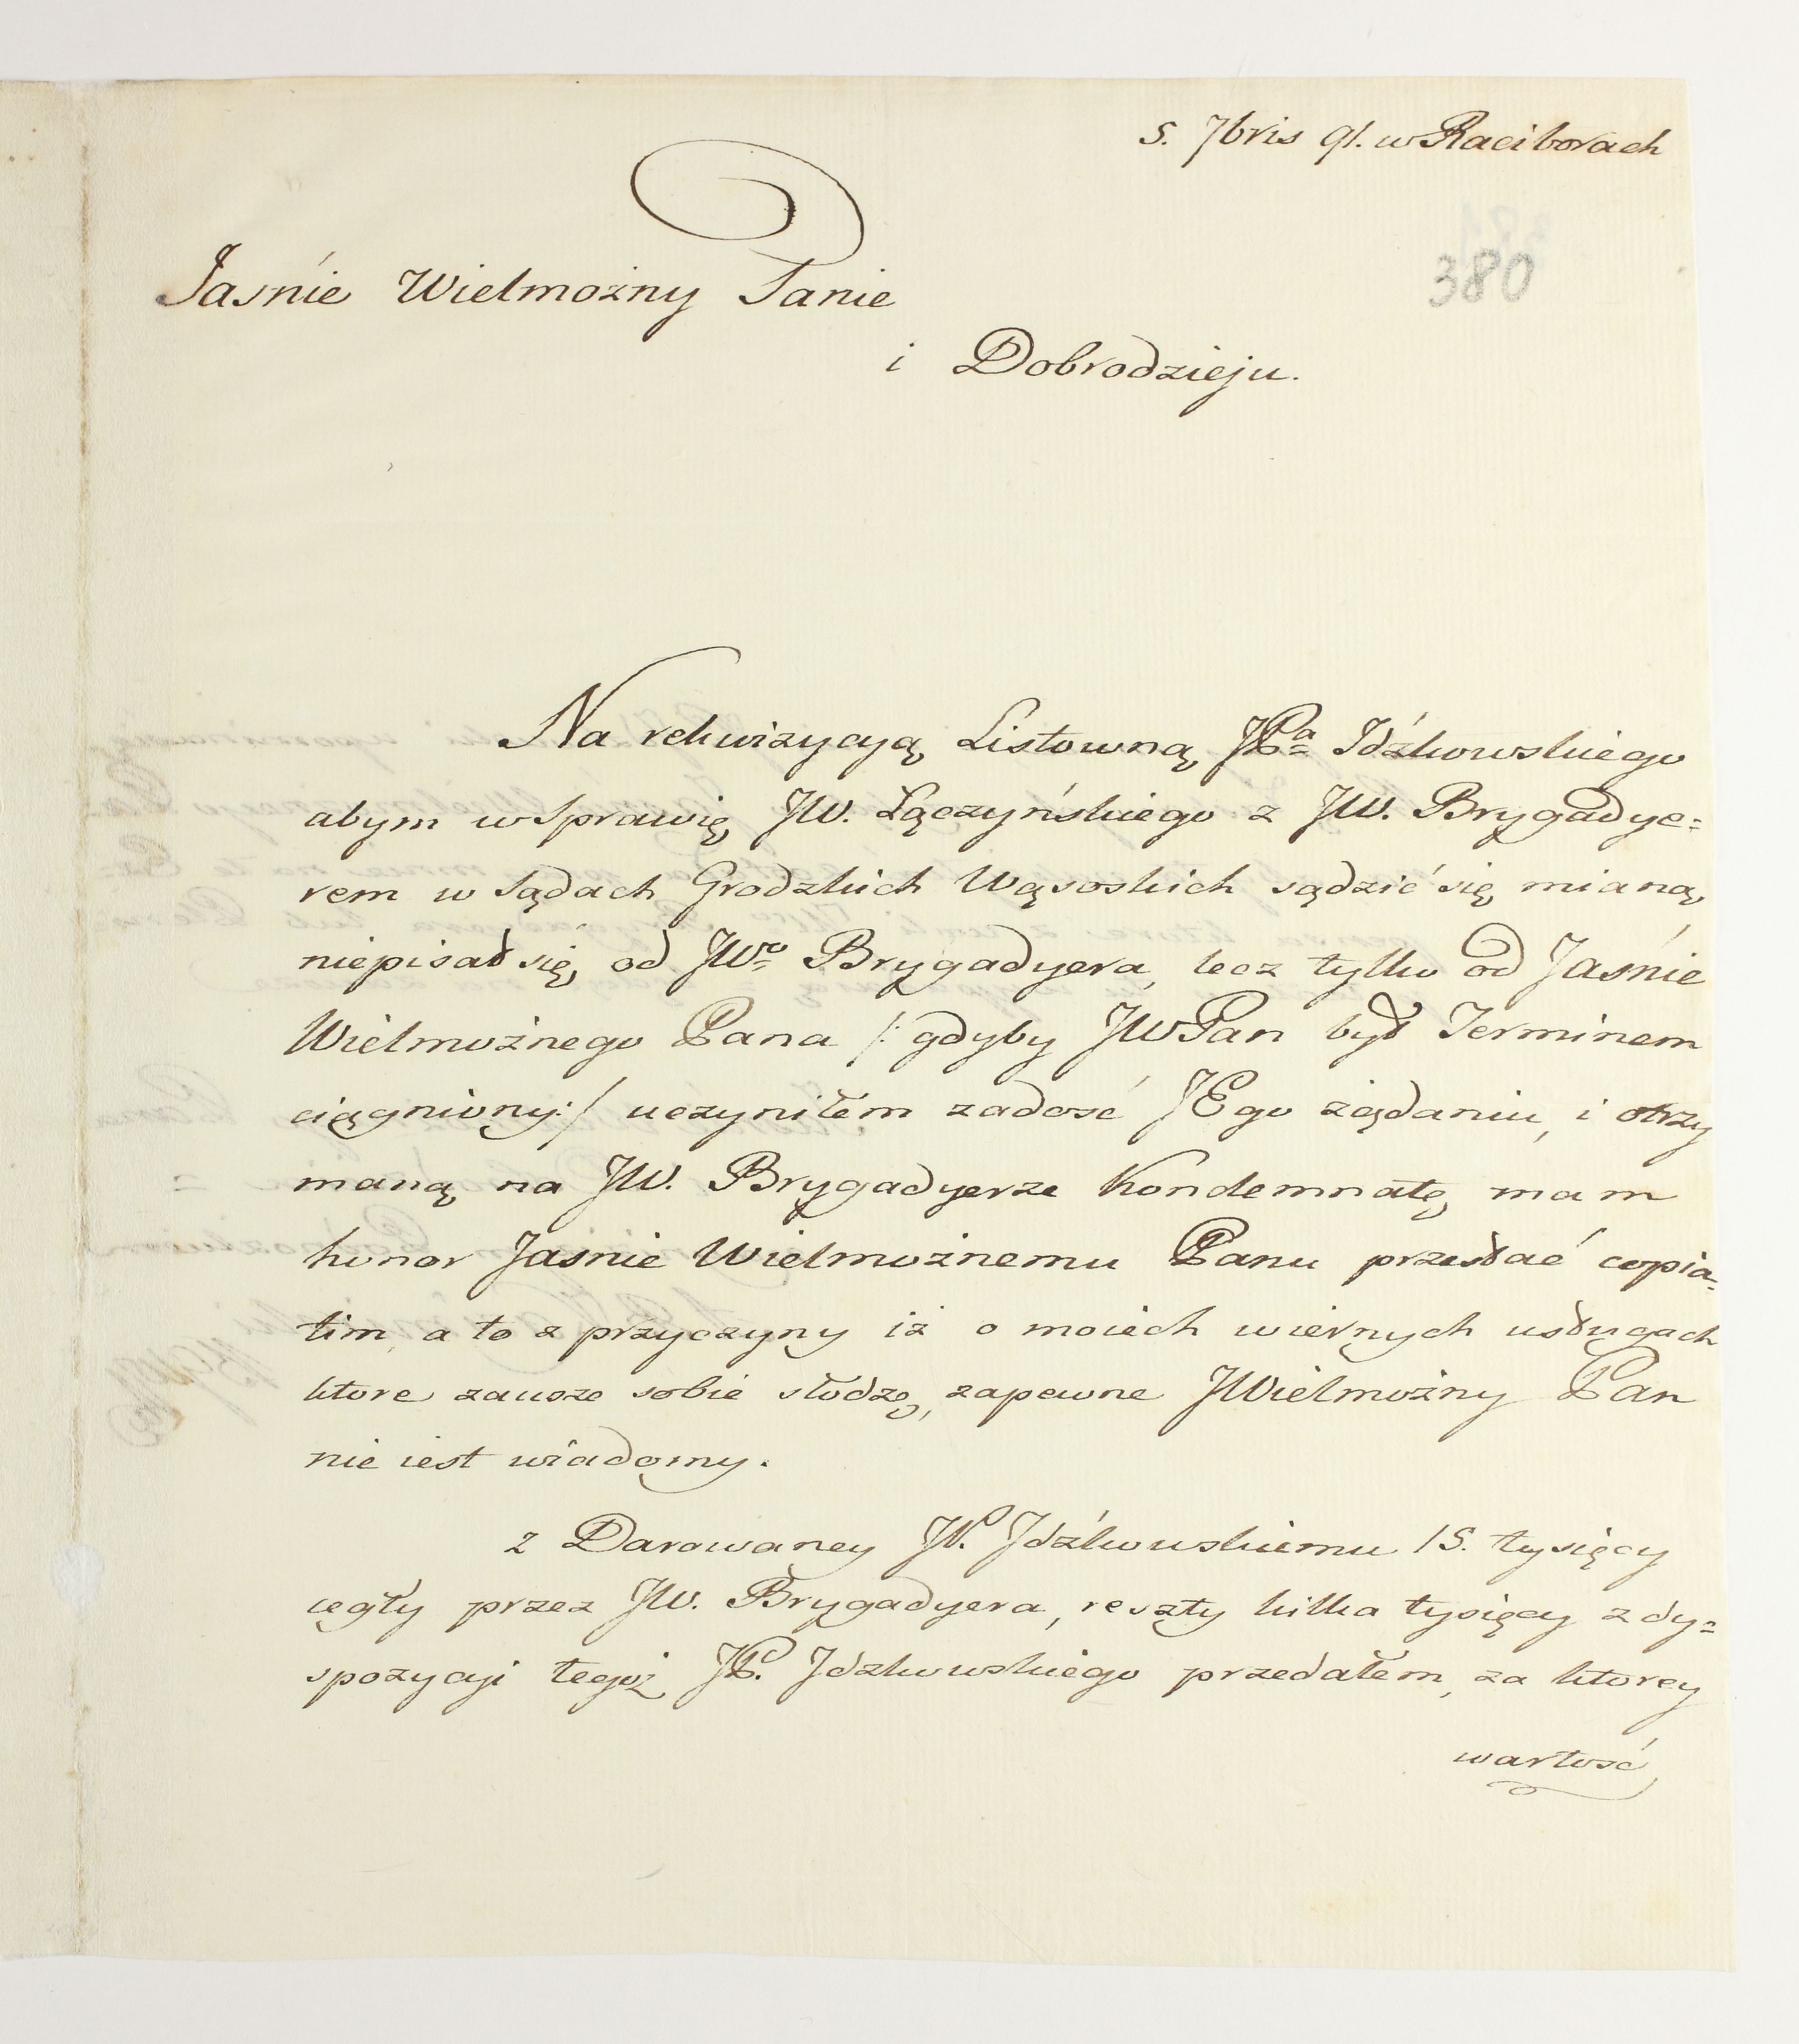 5. 7bris 91. w Raciborach
380
Jaśnie Wielmożny Panie
i Dobrodzieju.
Na rekwizycyą Listowną JPa Idźkowskiego
abym w Sprawię JW. Łączyńskiego z JW. Brygadye=
rem w Sądach Grodzkich Wąsoskich sądzić się mianą
niepisał się od JWo Brygadyera, lecz tylko od Jaśnie
Wielmożnego Pana /: gdyby JWPan był Terminem
ciągniony:/ uczyniłem zadosć JEgo żądaniu, i otrzy
maną na JW. Brygadyerze Kondemnatę mam
honor Jasnie Wielmożnemu Panu przesłać copia=
tim, a to z przyczyny iż o moiech wiernych usługach
ktore zawsze sobie słodzę, zapewne JWielmożny Pan
nie iest wiadomy.
z Darowaney JP. Jdźkowskiemu 15. tysięcy
cegły przez JW. Brygadyera, reszty kilka tysięcy z dy=
spozycji tegoż JP. Jdzkowskiego przedałem, za ktorey
wartosć